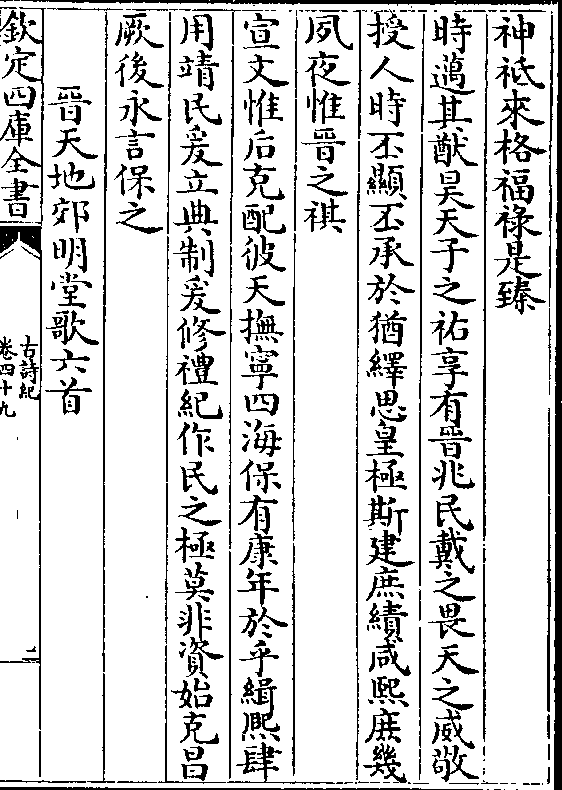 神祗來格福祿是臻
時邁其猷昊天子之祐享有晉兆民戴之畏天之威敬
授人時丕顯丕承於猶繹思皇極斯建庶績咸熙庶幾
夙夜惟晉之祺
宣文惟后克配彼天撫寧四海保有康年於乎緝熙肆
用靖民爰立典制爰修禮紀作民之極莫非資始克昌
厥後永言保之
晉天地郊明堂歌六首
欽定四庫全書
古詩紀
卷四十九
二